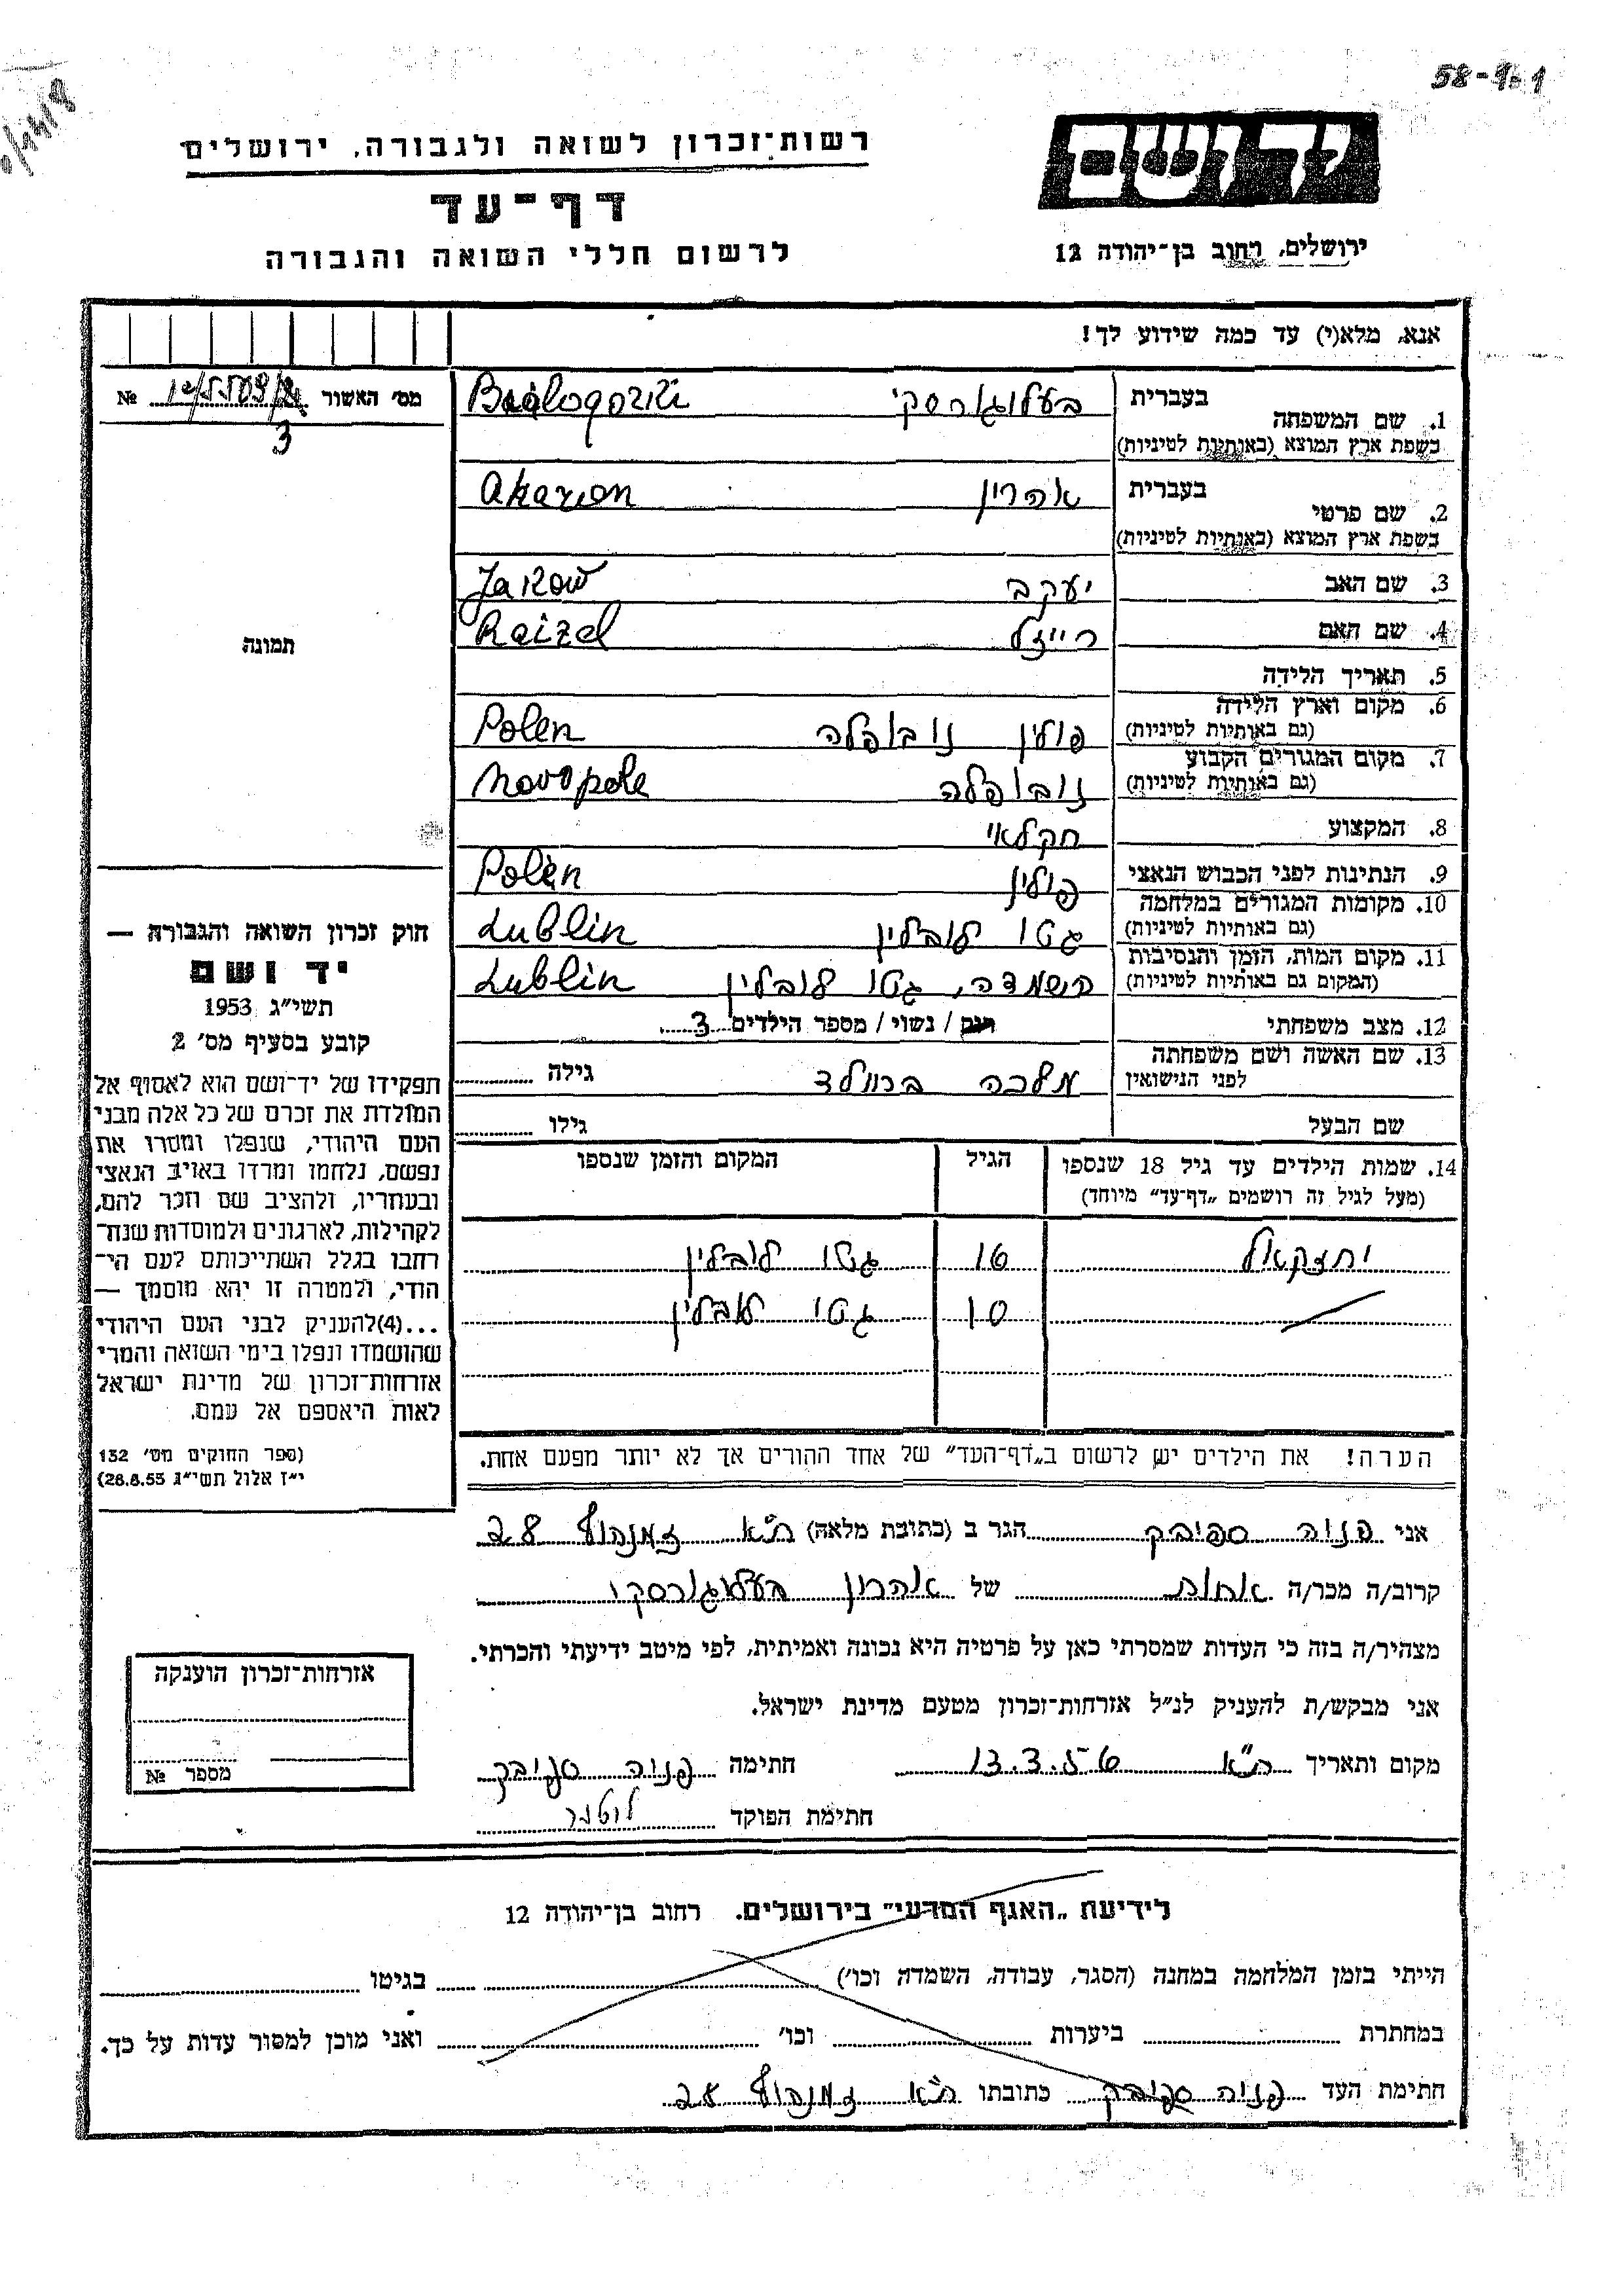 58-1.1
רשות־זכרון לשואה ולגבורה, ירושלים
יד ושם
דף־עד
לרשום חללי השואה והגבורה
ירושלים, רחוב בן־יהודה 12
אנא, מלא(י) עד כמה שידוע לך!
מס׳ האשור № 
3
תמונה
1. שם המשפחה בעברית בעלוגורסקי
בשפת ארץ המוצא (באותיות לטיניות)
2. שם פרטי בעברית אהרון Aharon
בשפת ארץ המוצא (באותיות לטיניות)
3. שם האב יעקב Jakow
4. שם האם רייזל Raizel
5. תאריך הלידה
6. מקום וארץ הלידה פולין נובופלה Polen
(גם באותיות לטיניות)
7. מקום המגורים הקבוע נובופלה Novopole
(גם באותיות לטיניות)
8. המקצוע חקלאי
9. הנתינות לפני הכבוש הנאצי פולין Polen
10. מקומות המגורים במלחמה גטו לובלין Lublin
(גם באותיות לטיניות)
11. מקום המות, הזמן והנסיבות השמדה, גטו לובלין Lublin
(המקום גם באותיות לטיניות)
12. מצב משפחתי רוק / נשוי / מספר הילדים 3
13. שם האשה ושם משפחתה מלכה גילה
לפני הנישואין
שם הבעל גילו
14. שמות הילדים עד גיל 18 שנספו הגיל המקום והזמן שנספו
(מעל לגיל זה רושמים „דף־עד״ מיוחד)
יחזקאל 16 גטו לובלין
10 גטו לובלין
הערה! את הילדים יש לרשום ב„דף־העד״ של אחד ההורים אך לא יותר מפעם אחת.
חוק זכרון השואה והגבורה —
יד ושם
תשי״ג 1953
קובע בסעיף מס׳ 2
תפקידו של יד־ושם הוא לאסוף אל
המולדת את זכרם של כל אלה מבני
העם היהודי, שנפלו ומסרו את
נפשם, נלחמו ומרדו באויב הנאצי
ובעוזריו, ולהציב שם וזכר להם,
לקהילות, לארגונים ולמוסדות שנח־
רבו בגלל השתייכותם לעם הי־
הודי, ולמטרה זו יהא מוסמך —
...(4)להעניק לבני העם היהודי
שהושמדו ונפלו בימי השואה והמרי
אזרחות־זכרון של מדינת ישראל
לאות היאספם אל עמם.
(ספר החוקים מס׳ 132
י״ז אלול תשי״ג 28.8.53)
אני פניה ספיבק הגר ב (כתובת מלאה) ת״א זמנהוף 28
קרוב/ה מכר/ה אחות של אהרון בעלוגורסקי
מצהיר/ה בזה כי העדות שמסרתי כאן על פרטיה היא נכונה ואמיתית, לפי מיטב ידיעתי והכרתי.
אני מבקש/ת להעניק לנ״ל אזרחות־זכרון מטעם מדינת ישראל.
מקום ותאריך ת״א 13.3.56 חתימה פניה ספיבק
חתימת הפוקד
אזרחות־זכרון הוענקה
מספר №
לידיעת „האגף המדעי״ בירושלים. רחוב בן־יהודה 12
הייתי בזמן המלחמה במחנה (הסגר, עבודה, השמדה וכו׳) בגיטו
במחתרת ביערות וכו׳ ואני מוכן למסור עדות על כך.
חתימת העד פניה ספיבק כתובתו ת״א זמנהוף 28